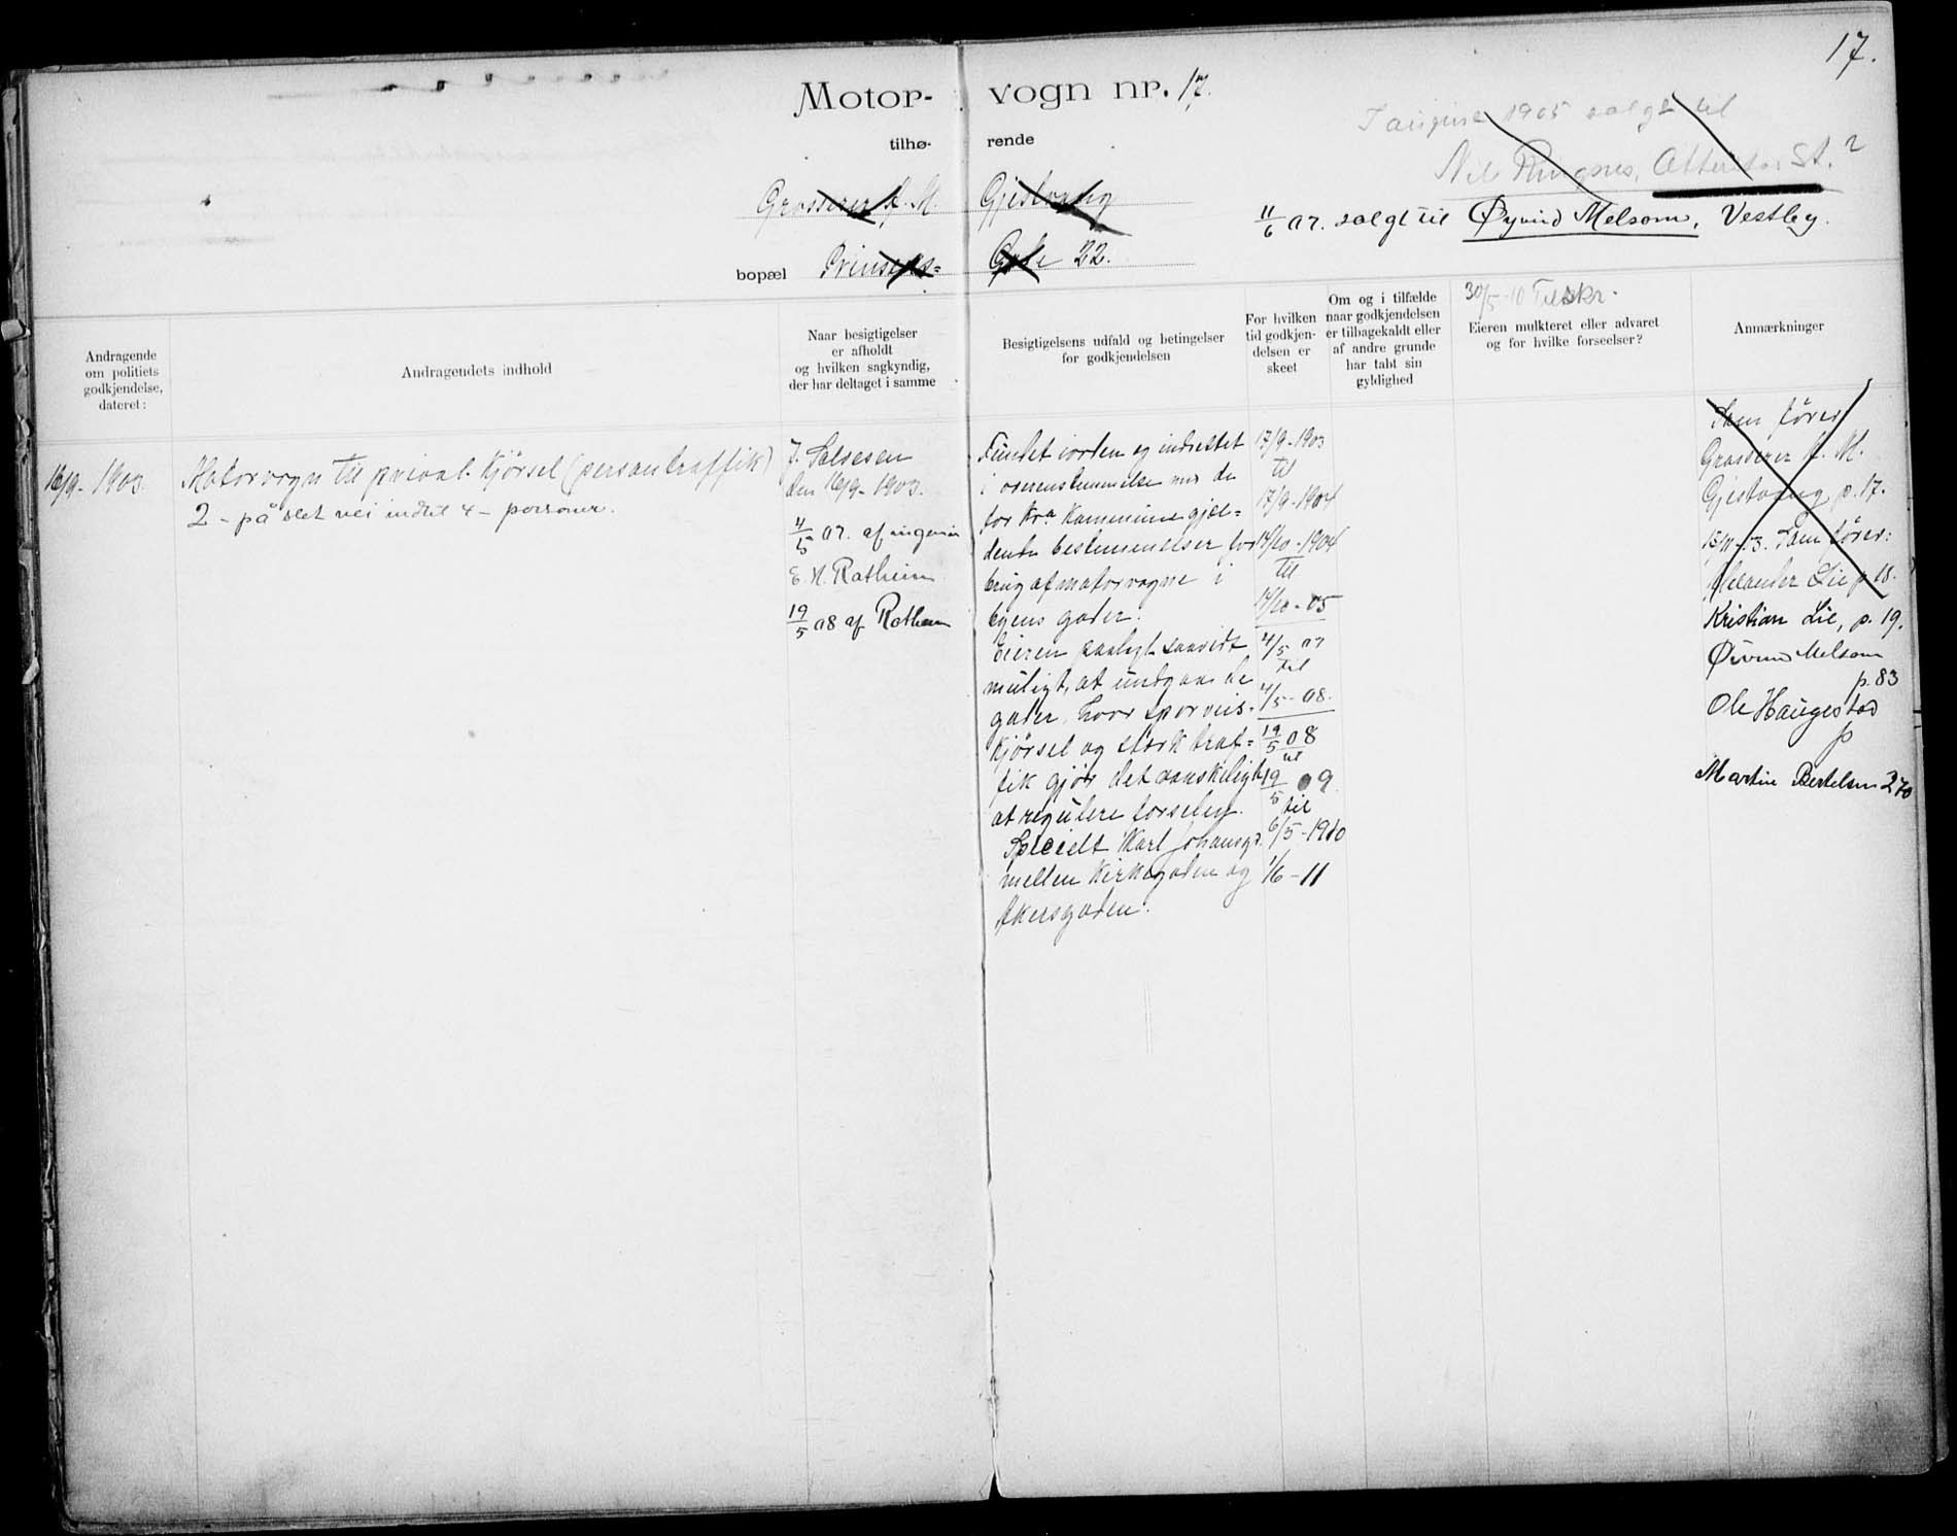 17.
Motor- vogn nr. 17.
tilhø- rende
Grosserer M. Gjestvang
bopæl Prinsens= Gade 22.
1905 solgt til
Nils Ringnes, St. 2
11/6 07. solgt til Øyvind Melsom, Vestby.
30/5-10 Tilskr.
Andragende
om politiets
godkjendelse,
dateret:
Andragendets indhold
Naar besigtigelser
er afholdt
og hvilken sagkyndig,
der har deltaget i samme
Besigtigelsens udfald og betingelser
for godkjendelsen
For hvilken
tid godkjen-
delsen er
skeet
Om og i tilfælde
naar godkjendelsen
er tilbagekaldt eller
af andre grunde
har tabt sin
gyldighed
Eieren mulkteret eller advaret
og for hvilke forseelser?
Anmærkninger
16/9- 1903.
Motorvogn til privat kjörsel (persontraffik)
2 - på slet vei indtil 4 - personer.
J.
den 16/9- 1903.
4/5 07. af ingeniör
E. H. Rotheim
19/5 08 af Rotheim
Fundet i orden og indrettet
i overenstemmelse med de
for Kra Kommune gjæl=
dende bestemmelser for
brug af motorvogne i
byens gader.
Eieren paalagt saavidt
muligt, at undgaa de
gader, hvor sporveis-
kjörsel og stærk traf=
fik gjör det vanskeligt
at regulere
Specielt Karl Johansgd.
mellem Kirkegaden og
Akersgaden.
17/9-1903
til
17/9-1904
14/10-1904
til
14/10-05
4/5 07
til
4/5-08.
19/5 08
til
19/5 09
til
6/5-1910
1/6-11
Som förer
Grosserer M.
Gjestvang p. 17.
15/11-03. Som förer:
Lie p. 18.
Kristian Lie, p. 19.
Øivind Melsom
p. 83
Ole Haugestad
p
Martin Bertelsen 270